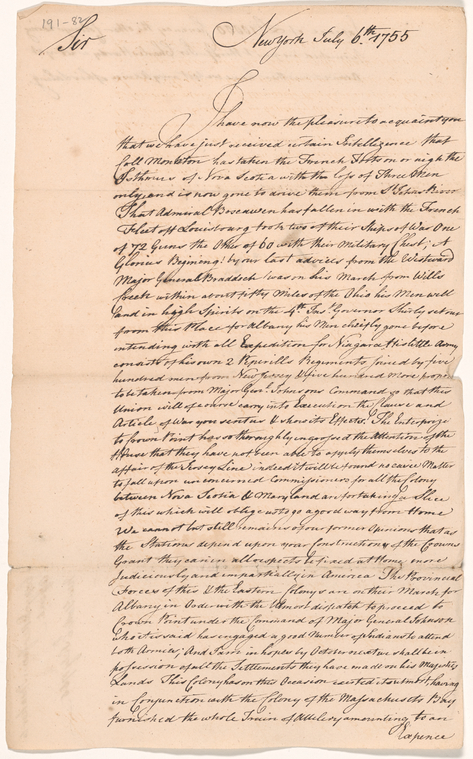 191-82
Sir
New York July 6.th 1755
I have now the pleasure to acquaint you
that we have just received certain Intelligence that
Coll Monckton has taken the French Forts on or nigh the
Isthmus of Nova Scotia with the loss of Three Men
only, and is now gone to drive them from St Johns River
That Admiral Boscawen has fallen in with the French
Fleet off Louisbourg took two of their Ships of War One
of 72 Guns the Other of 60 with their Military Chest; A
Glorius Begining! by our last advices from the Westward
Major General Braddock was in his March from Wills
Creek within about fifty Miles of the Ohio his Men well
and in high Spirits on the 4th Ins.t Governor Shirly set out
from this Place for Albany his Men chiefly gone before
intending with all Expedition for Niagara His little Army
consists of his own & Peperills Regiments joined by five
hundred men from New Jersey & five hundred more
to be taken from Major Gen.l Johnsons Command so that this
Union will of course carry into Execution the Clause and
Article of War you sent us & shows its Effects. The Enterprize
to Crown Point has so thoroughly ingrossed the Attention of the
House that they have not been able to apply themselves to the
affair of the Jersey Line indeed it will be found no easie Matter
to fall upon unconcerned Commissioners for all the Colony
between Nova Scotia & Maryland are for taking a Slice
of this which will oblige us to go a good way from Home
We cannot but still remain of our former Opinions that as
the Stations depend upon your Construction of the Crowns
Grant they can in all respects be fixed at Home more
Judiciously and impartially than in America The Provincial
Forces of this & the Eastern Colonys are on their March for
Albany in Order with the Utmost dispatch to proceed to
Crown Point under the Command of Major General Johnson
who it is said has engaged a good Number of Indians to attend
both Armies; And I am in hopes by October next we shall be in
possession of all the Settlements they have made on his Majestys
Lands This Colony has on this Occasion exerted to utmost having
in Conjunction with the Colony of the Massachusets Bay
furnished the whole Train of Artillery amounting to an
Expence